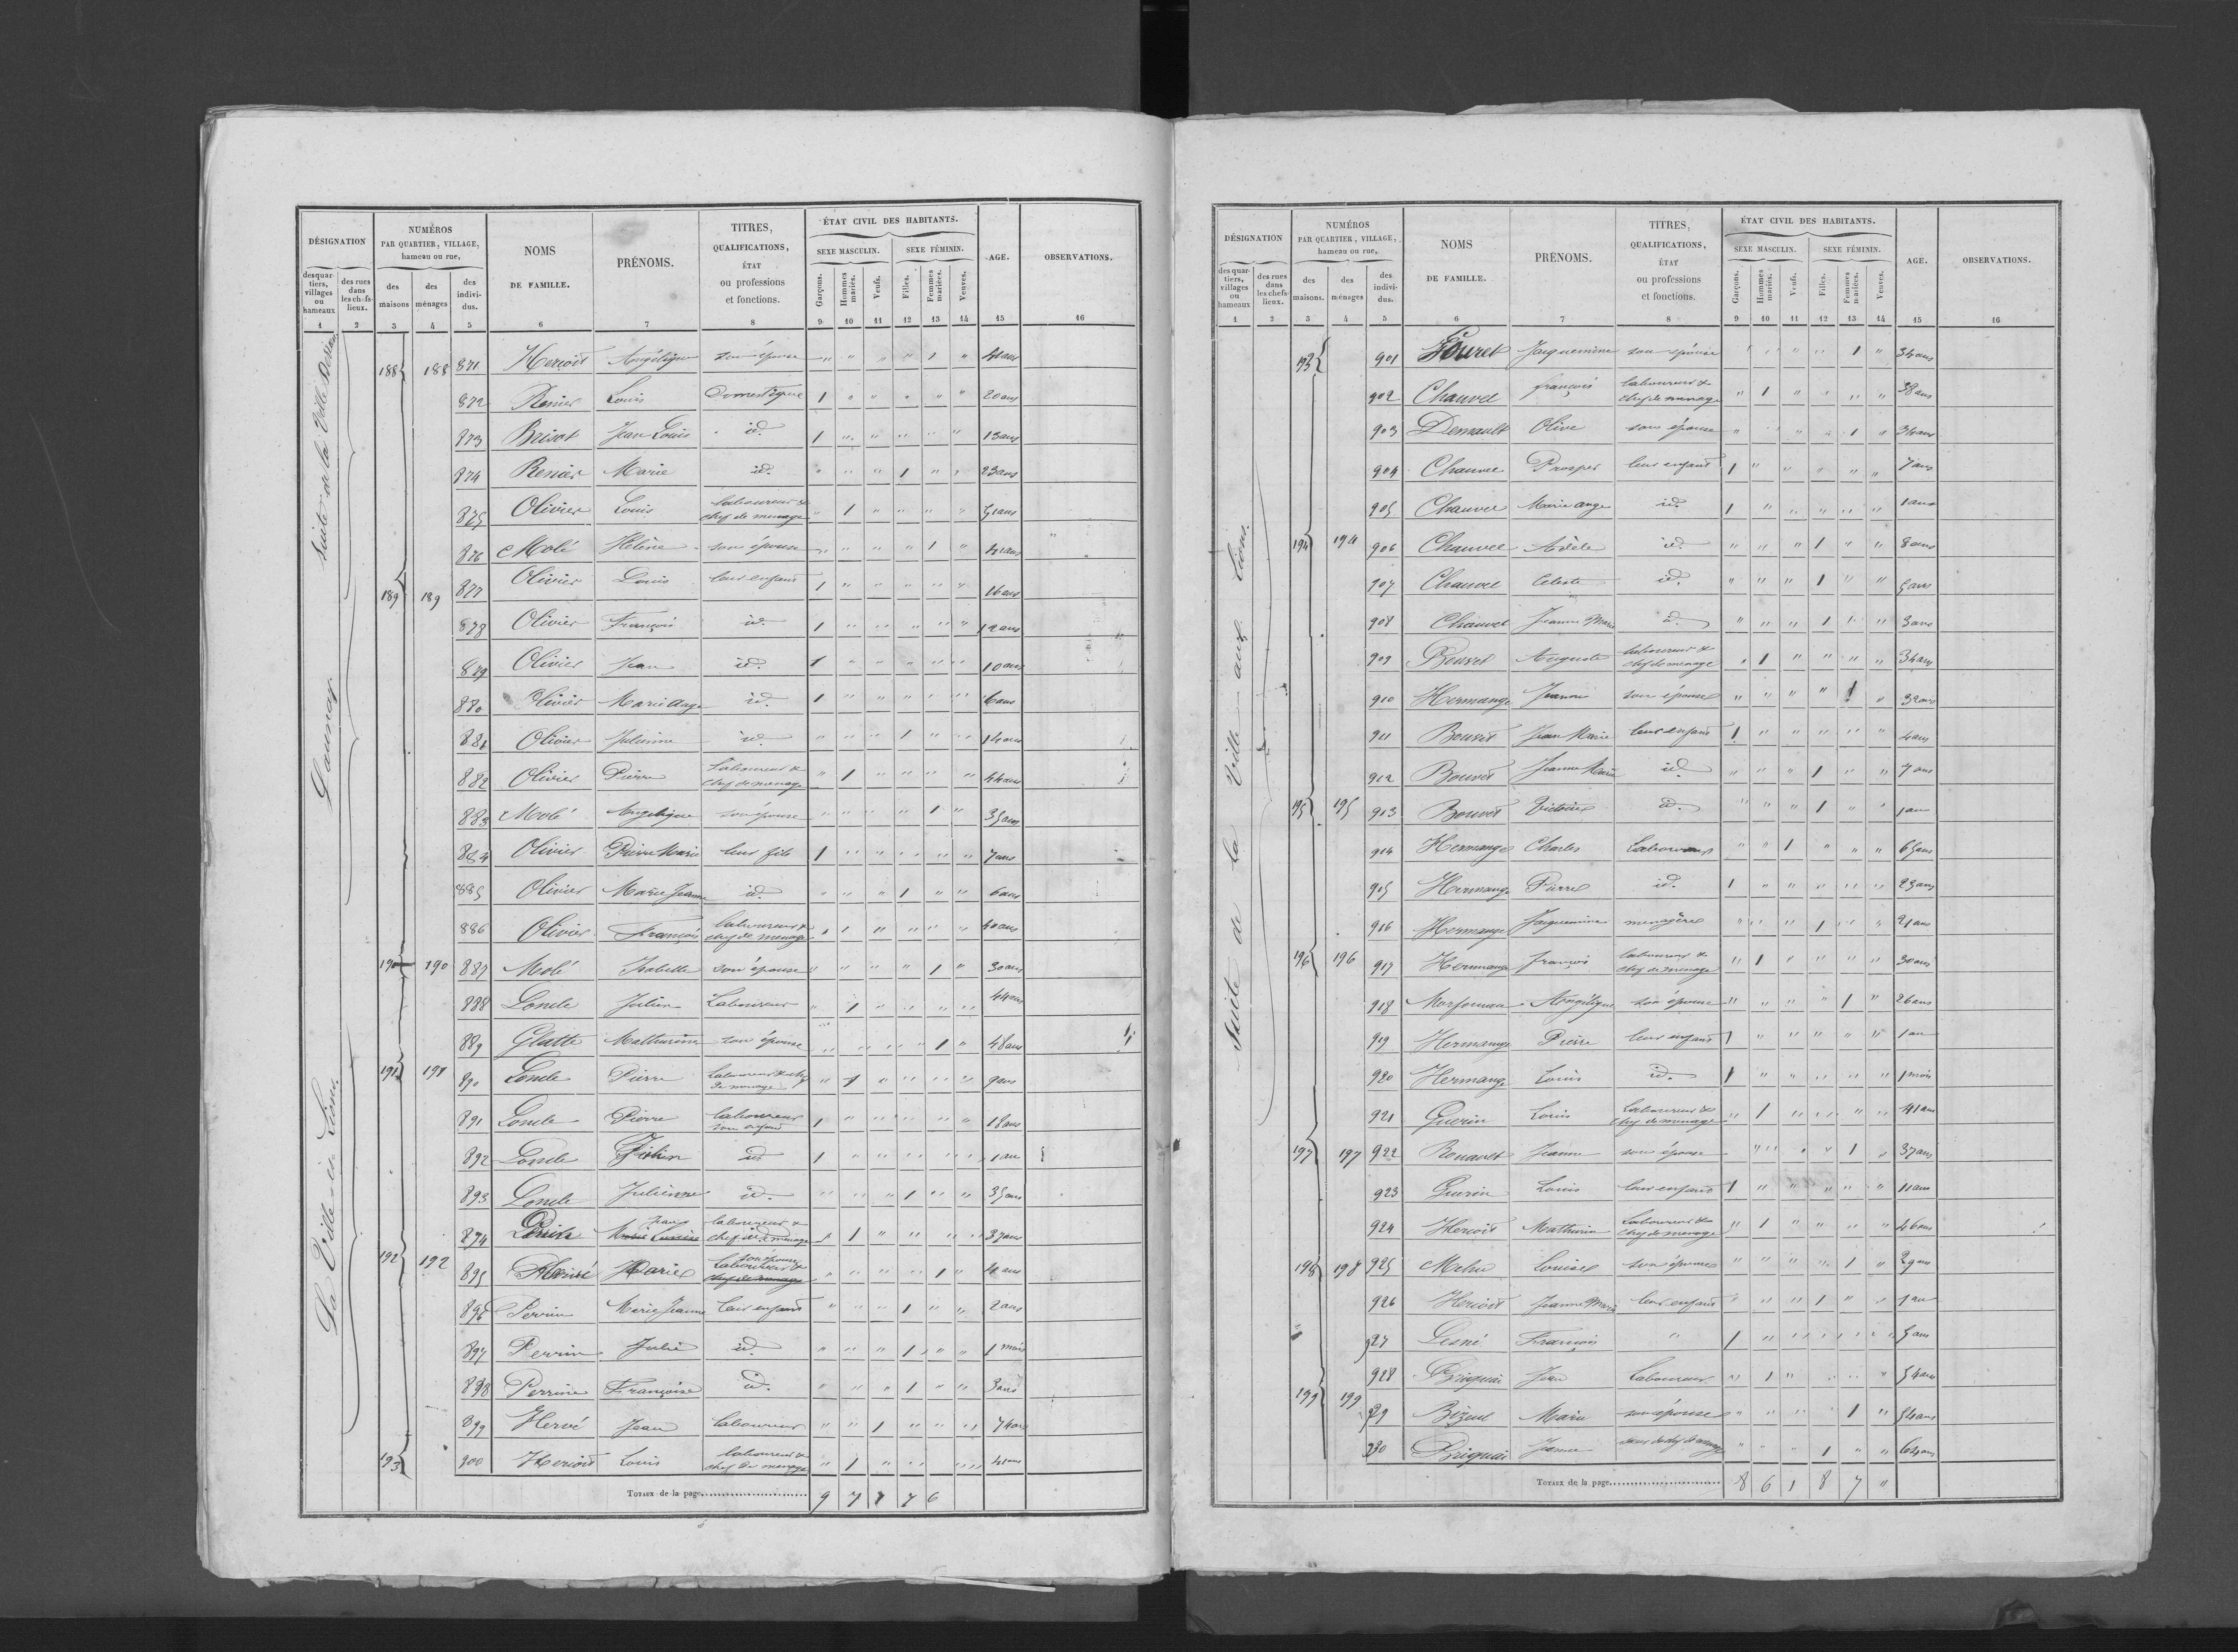 DÉSIGNATION
NUMÉROS
PAR QUARTIER, VILLAGE,
hameau ou rue,
NOMS
DE FAMILLE.
PRÉNOMS.
TITRES,
QUALIFICATIONS,
ÉTAT
ou professions
et fonctions.
ÉTAT CIVIL DES HABITANTS.
SEXE MASCULIN. SEXE FÉMININ.
AGE.
OBSERVATIONS.
des quartiers, villages ou hameaux
des rues dans les chefs-lieux.
des maisons
des ménages
des individus.
Garçons. Hommes mariés. Veufs. Filles. Femmes mariées. Veuves.
1 2 3 4 5 6 7 8 9 10 11 12 13 14 15 16
Suite de la Ville
Launay
La Ville Lions.
188 188 871 Hercoët Angélique son épouse " " " " 1 " 41 ans
872 Renier Louis Domestique 1 " " " " " 20 ans
873 Brisot Jean Louis id. 1 " " " " " 13 ans
874 Renier Marie id. " " " 1 " " 23 ans
875 Olivier Louis laboureur & chef de menage " 1 " " " " 51 ans
876 Molé Hélène son épouse " " " " 1 " 42 ans
189 189 877 Olivier Louis leur enfant 1 " " " " " 16 ans
878 Olivier François id. 1 " " " " " 12 ans
879 Olivier Jean id. 1 " " " " " 10 ans
880 Olivier Marie Ange id. 1 " " " " " 6 ans
881 Olivier Julienne id. " " " 1 " " 14 ans
882 Olivier Pierre Laboureur & chef de menage " 1 " " " " 44 ans
883 Molé Angelique son épouse " " " " 1 " 35 ans
884 Olivier Pierre Marie leur fils 1 " " " " " 7 ans
885 Olivier Marie Jeanne id " " " 1 " " 6 ans
886 Olivier François laboureur & chef de menage " 1 " " " " 40 ans
190 190 887 Molé Isabelle son épouse " " " " 1 " 30 ans
888 Loncle Julien Laboureur " 1 " " " " 44 ans
889 Glatte Mathurine son épouse " " " " 1 " 48 ans
191 191 890 Loncle Pierre Laboureur & chef de menage " 1 " " " "
891 Loncle Pierre laboureur son enfant 1 " " " " " 18 ans
892 Loncle Julien id 1 " " " " " 1 an
893 Loncle Julienne id. " " " 1 " " 35 ans
894 Perrin Jean laboureur & chef de menage " 1 " " " " 37 ans
192 192 895 Marie son épouse " " " " 1 "
896 Perrin Marie Jeanne leur enfant " " " 1 " " 2 ans
897 Perrin Julie id. " " " 1 " " 1 mois
898 Perrine Françoise id. " " " 1 " " 3 ans
899 Hervé Jean laboureur " " 1 " " " 74 ans
193 900 Hercoët Louis laboureur & chef de menage " 1 " " " " 41 ans
TOTAUX de la page 9 7 1 7 6
DÉSIGNATION
NUMÉROS
PAR QUARTIER, VILLAGE,
hameau ou rue,
NOMS
DE FAMILLE.
PRÉNOMS.
TITRES,
QUALIFICATIONS,
ÉTAT
ou professions
et fonctions.
ÉTAT CIVIL DES HABITANTS.
SEXE MASCULIN. SEXE FÉMININ.
AGE.
OBSERVATIONS.
des quartiers, villages ou hameaux
des rues dans les chefs-lieux.
des maisons.
des ménages
des individus.
Garçons. Hommes mariés. Veufs. Filles. Femmes mariées. Veuves.
1 2 3 4 5 6 7 8 9 10 11 12 13 14 15 16
Suite de la Ville aux Lions.
193 901 Jacquemine son épouse " " " " 1 " 34 ans
902 Chauvel françois laboureur & chef de menage " 1 " " " " 38 ans
903 Olive son épouse " " " " 1 " 34 ans
904 Chauvel Prosper leur enfant 1 " " " " " 7 ans
905 Chauvel Marie ange id. 1 " " " " " 1 ans
194 194 906 Chauvel Adèle id. " " " 1 " " 8 ans
907 Chauvel Celeste id. " " " 1 " " 5 ans
908 Chauvel Jeanne Marie id " " " 1 " " 3 ans
909 Bouvet Auguste laboureur & chef de menage " 1 " " " " 34 ans
910 Hermange Jeanne son épouse " " " " 1 " 32 ans
911 Bouvet Jean Marie leur enfant 1 " " " " " 4 ans
912 Bouvet Jeanne Marie id " " " 1 " " 7 ans
195 195 913 Bouvet Victoire id. " " " 1 " " 1 an
914 Hermange Charles Laboureur " " 1 " " " 65 ans
915 Hermange Pierre id. 1 " " " " " 23 ans
916 Hermange Jacquemine menagère " " " 1 " " 21 ans
196 196 917 Hermange François laboureur & chef de menage " 1 " " " " 30 ans
918 Angélique son épouse " " " " 1 " 26 ans
919 Hermange Pierre leur enfant 1 " " " " " 1 an
920 Hermange Louis id. 1 " " " " " 1 mois
921 Guerin Louis Laboureur & chef de menage " 1 " " " " 41 ans
197 197 922 Rouault Jeanne son épouse " " " " 1 " 37 ans
923 Guerin Louis leur enfant 1 " " " " " 11 ans
924 Hercoët Mathurin Laboureur & chef de menage " 1 " " " " 46 ans
198 198 925 Mahu Louise son épouse " " " " 1 " 29 ans
926 Hercoët Jeanne Marie leur enfant " " " 1 " " 1 an
927 Lesné François " 1 " " " " " 5 ans
928 Briquai Jean Laboureur " 1 " " " " 54 ans
199 199 929 Bizeul Marie son épouse " " " " 1 " 54 ans
930 Briquai Jeanne " " " 1 " " 64 ans
TOTAUX de la page 8 6 1 8 7 "